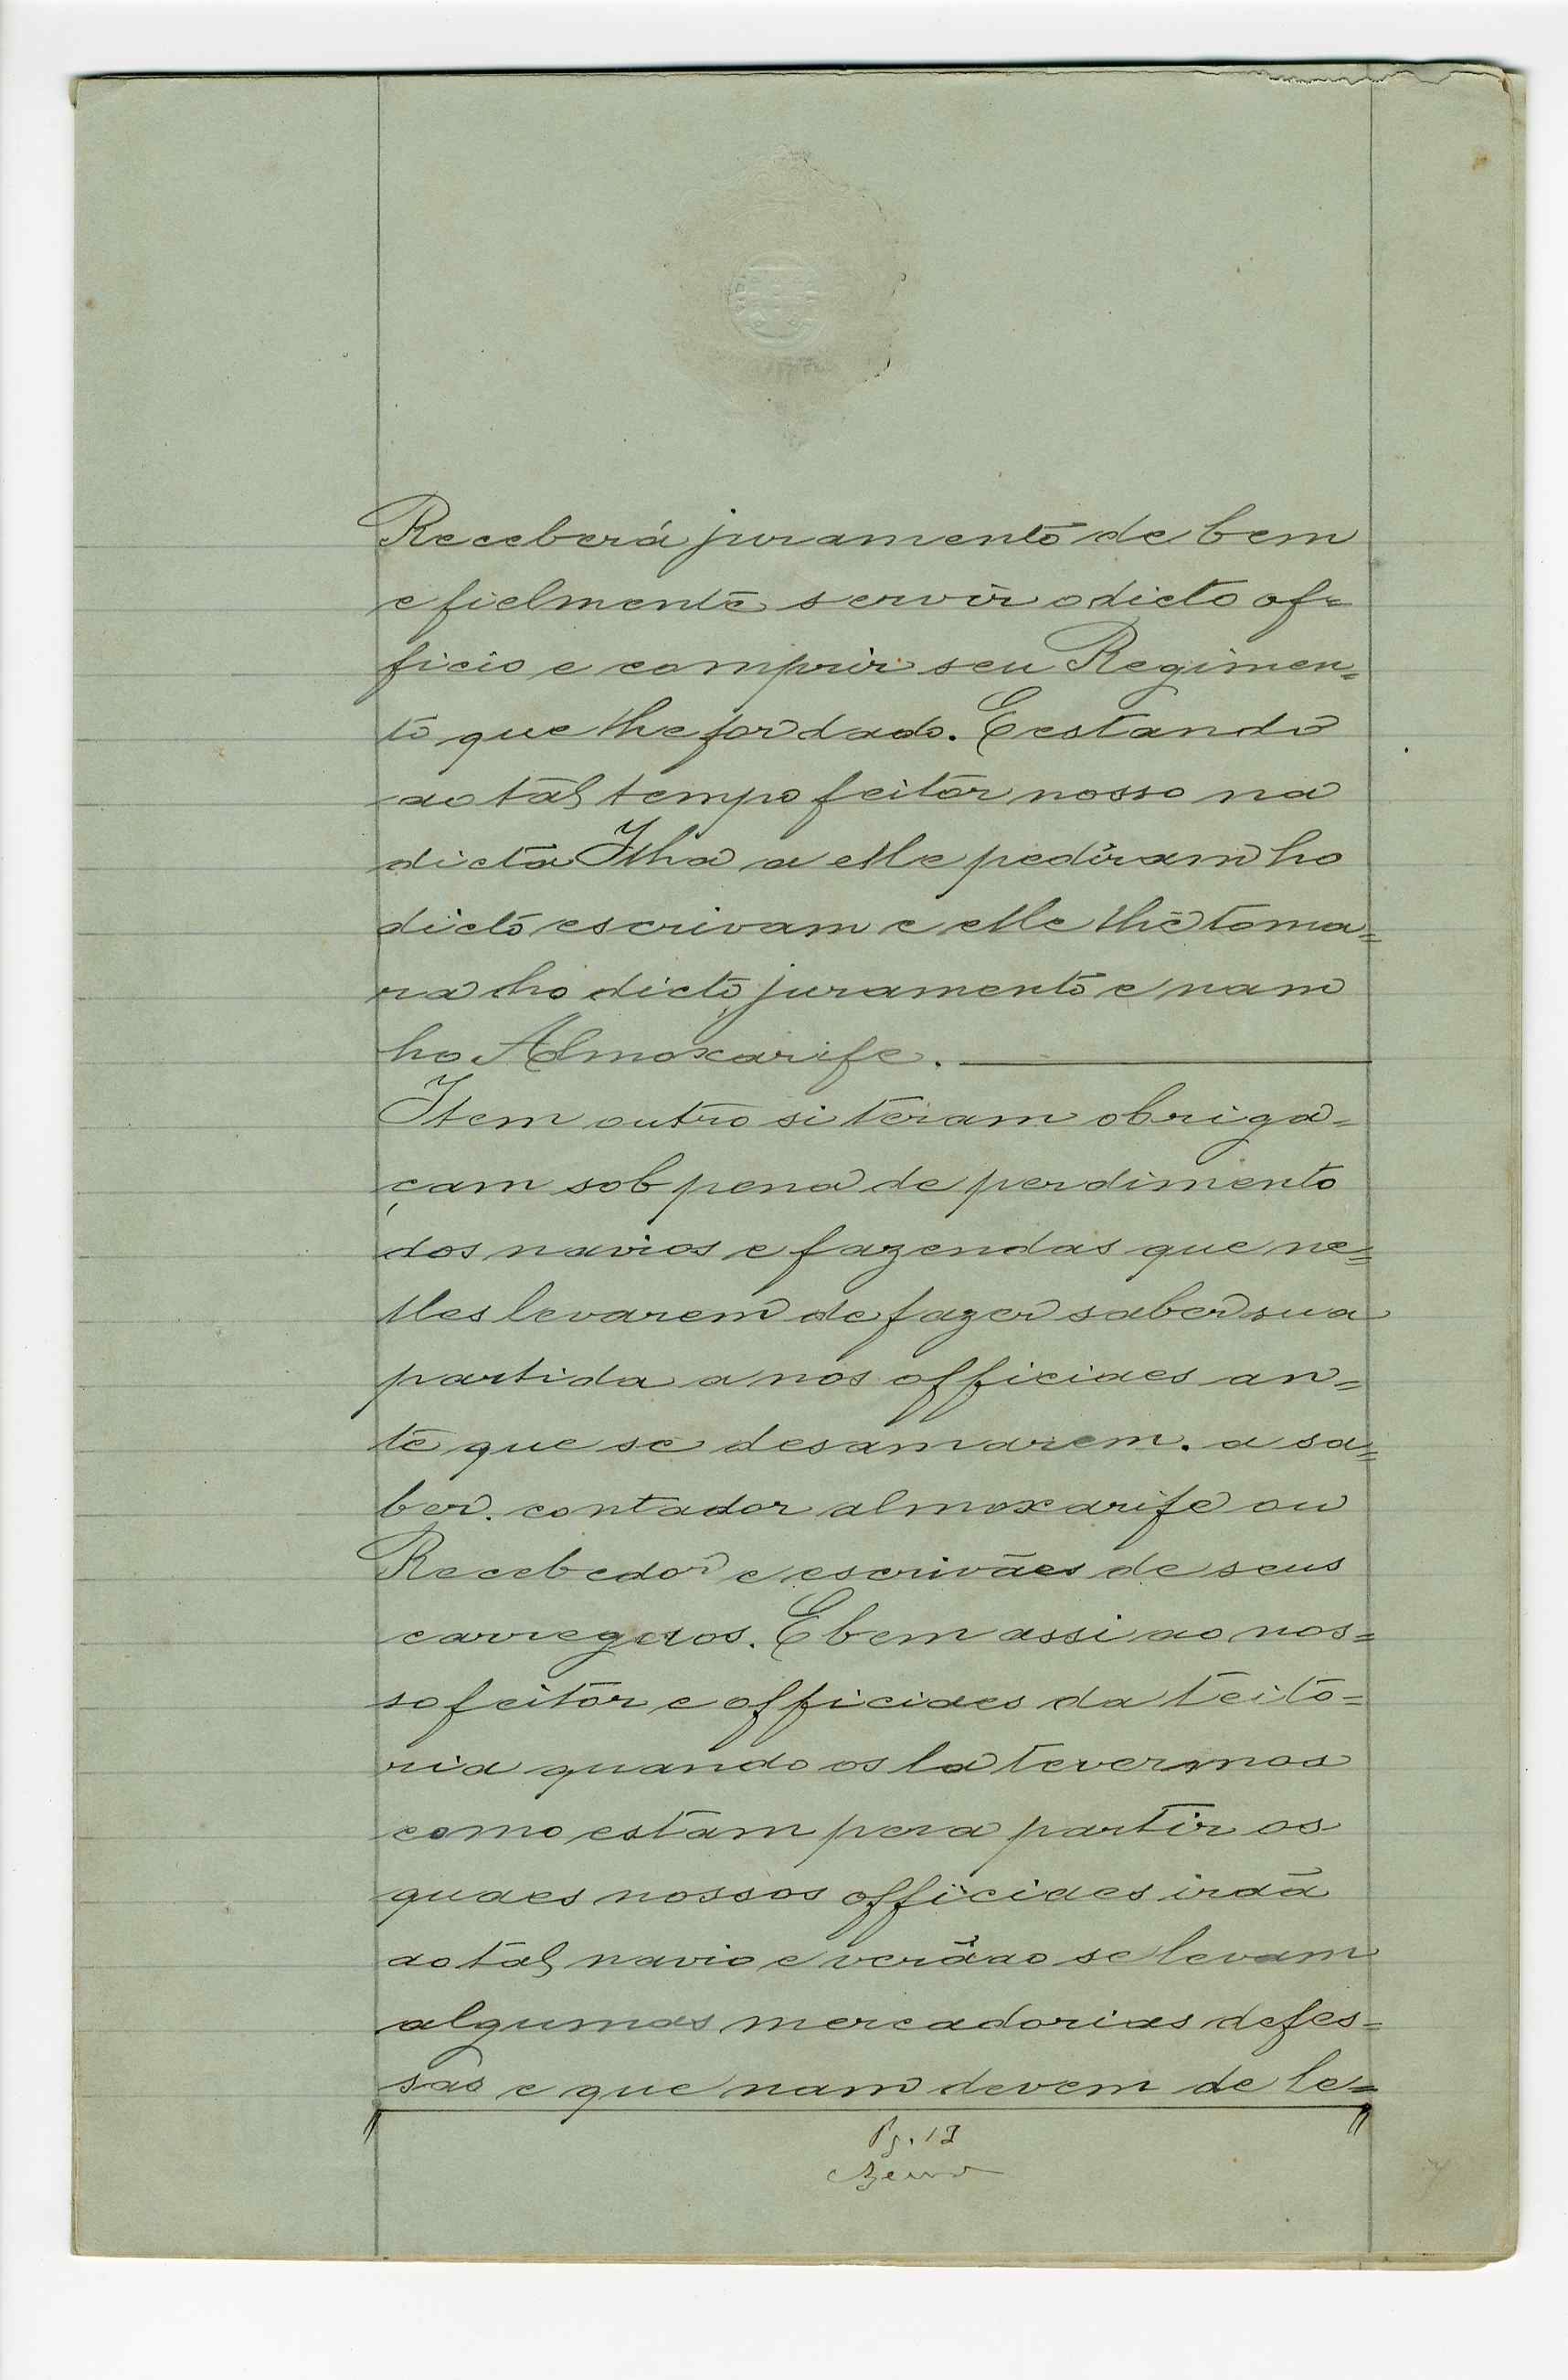 Receberá juramento de bem
e fielmente servir o dicto of=
ficio e comprir seu Regimen=
to que lhe for dado. E estando
ao tal tempo feitor nosso na
dicta Ilha a elle pediram ho
dicto escrivam e elle lhe toma=
ra ho dicto juramento e nam
ho Almoxarife.
Item outro si teram obriga=
çam sob pena de perdimento
dos navios e fazendas que ne=
lles levarem de fazer saber sua
partida a nos officiaes an=
te que se desamarem. a sa=
ber. contador almoxarife ou
Recebedor e escrivães de seus
carregos. E bem assi ao nos=
so feitor e officiaes da feito=
ria quando os la tevermos
como estam pera partir os
quaes nossos officiaes irão
ao tal navio e verão se levam
algumas mercadorias defes=
sas e que nam devem de le=
Pg. 12